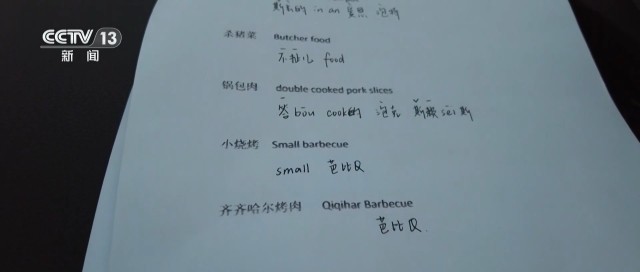 CCTV 13
新闻
in an
杀猪菜 Butcher food
不扯儿 food
锅包肉 double cooked pork slices
cook的 泡克 斯赖sei斯
小烧烤 Small barbecue
small 芭比Q
齐齐哈尔烤肉 Qiqihar Barbecue
芭比Q